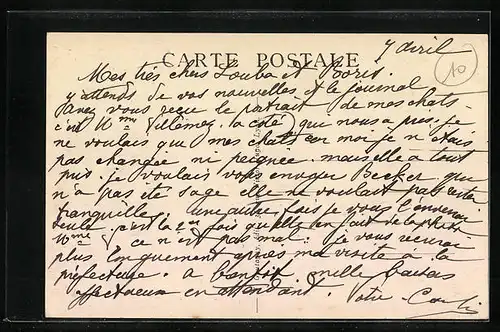 CARTE POSTALE
7 avril
10
Mes très chers Louba et Boris.
J'attends de vos nouvelles et le journal
Avez vous reçu le portrait de mes chats -
c'est Mme (la côté) qui nous a pris. je
ne voulais que mes chats car moi je n'étais
pas changée ni peignée mais elle a tout
pris. je voulais vous envoyer Becker qui
n'a pas été sage elle ne voulait pas rester
tranquille. une autre fois je vous l'enverrai
seule c'est la 2me fois qu'elle en fait de la photo
Mme V ce n'est pas mal. Je vous écrirai
plus longuement après ma visite à la
préfecture. a bientôt mille baisers
affectueux en attendant. Votre